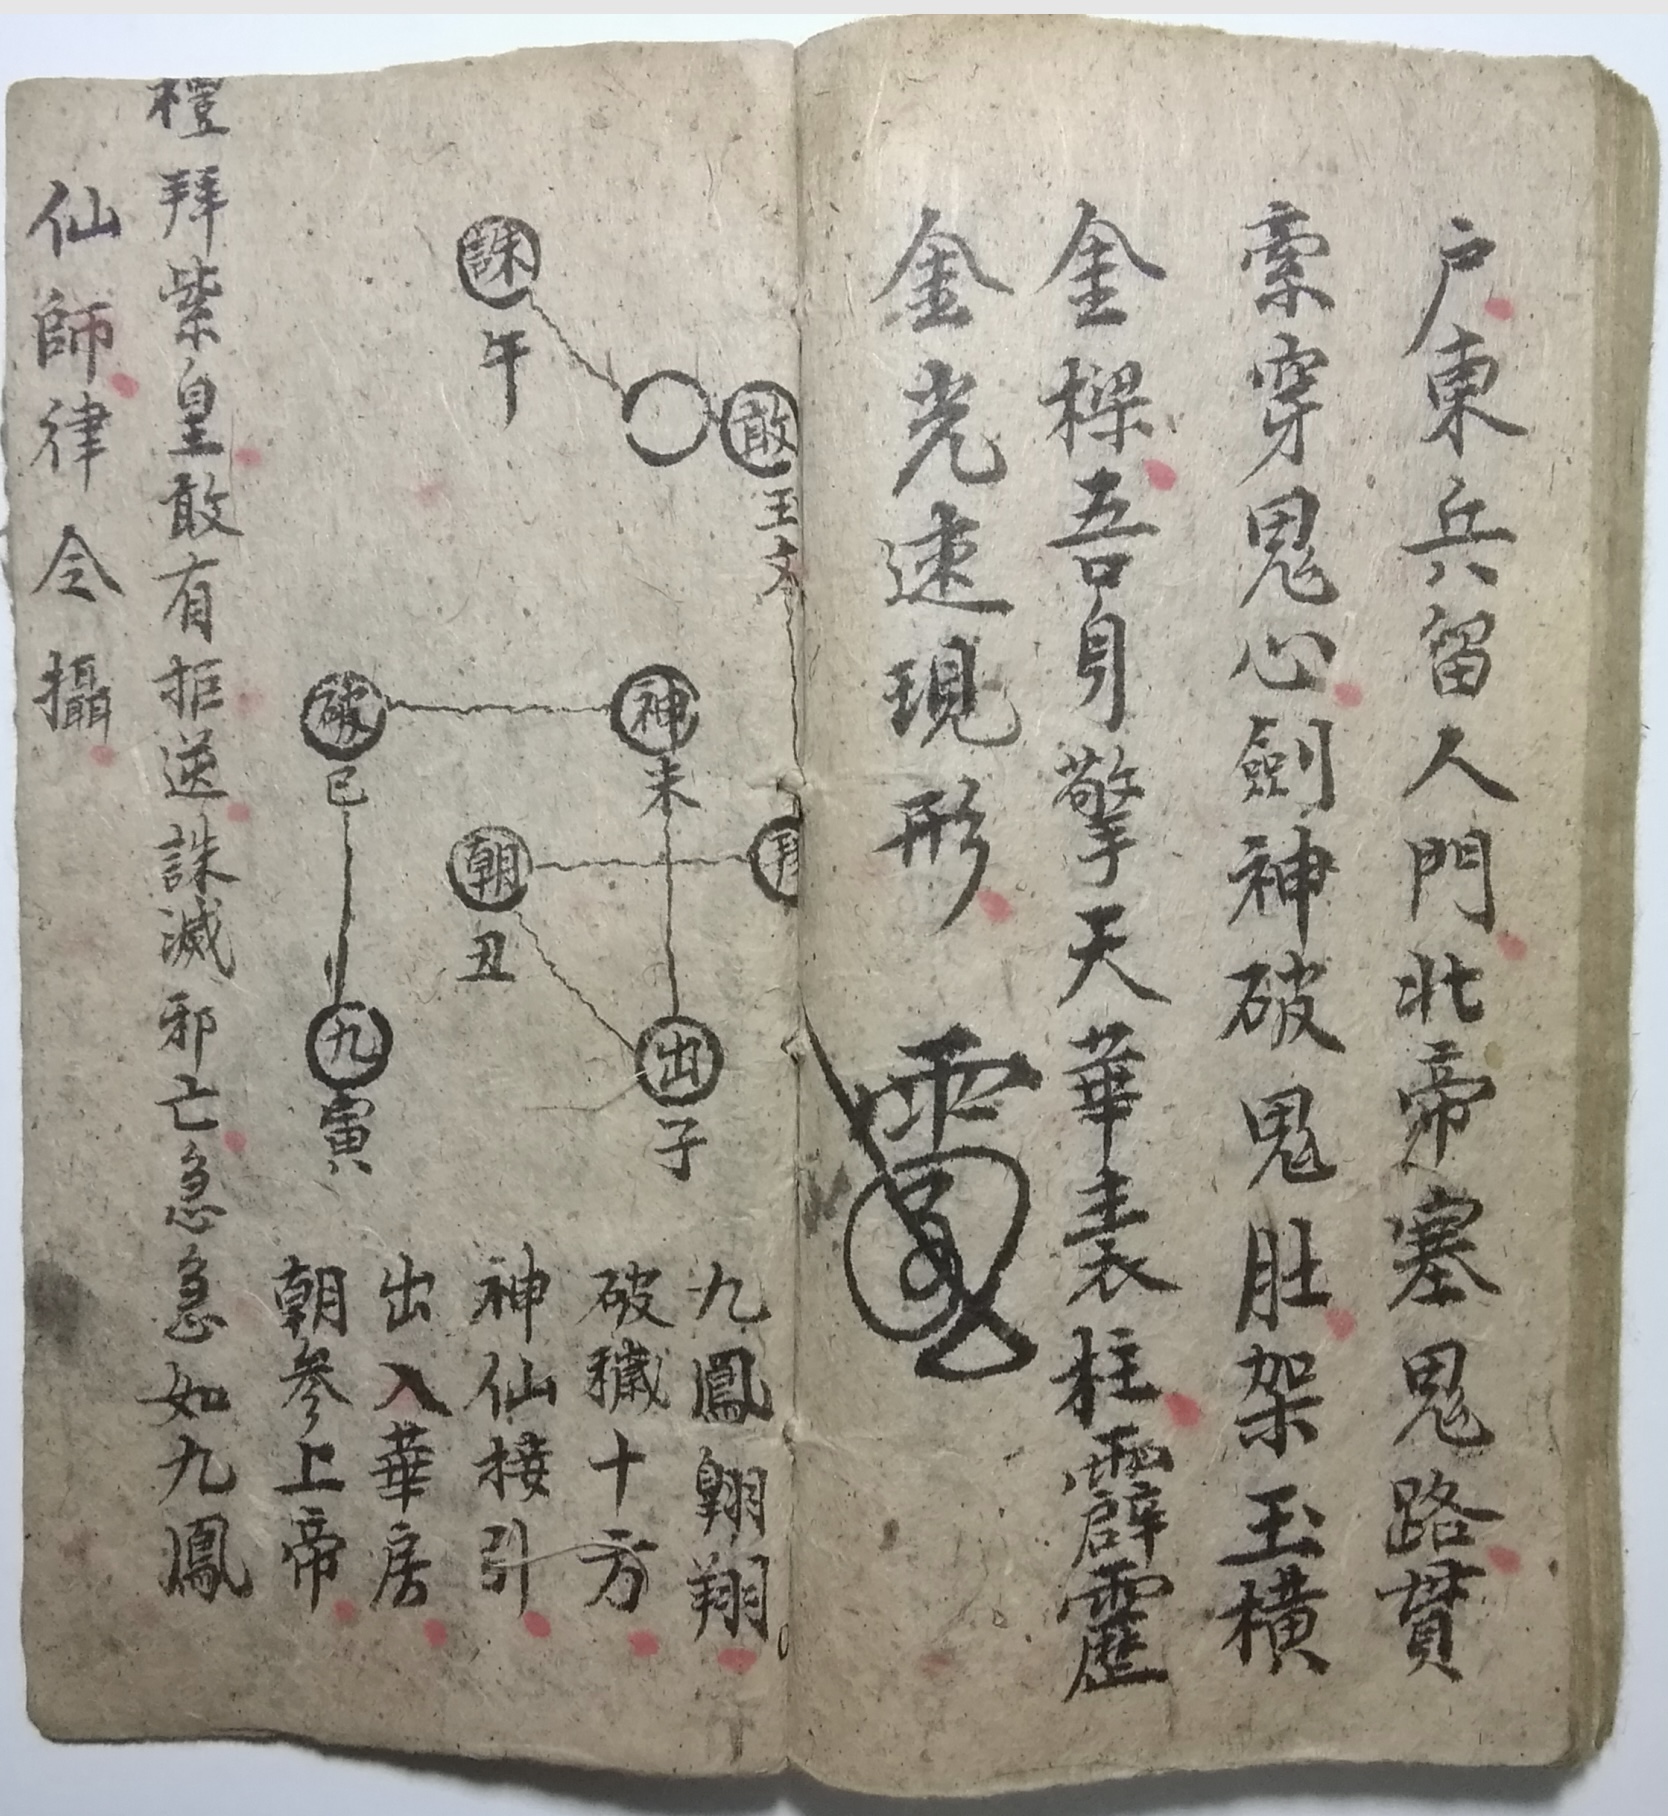 户東兵留人門北帝塞鬼路貫
索穿鬼心劍神破鬼肚架玉橫
金樑吾身擎天華表柱霹靂
金光速現形
誅
午
敢
王文
破
巳
神
未
朝
丑
九
寅
出
子
九鳳翱翔
破穢十方
神仙接引
出入華房
朝參上帝
禮拜紫皇敢有拒逆誅滅邪亡急急如九鳳
仙師律令攝